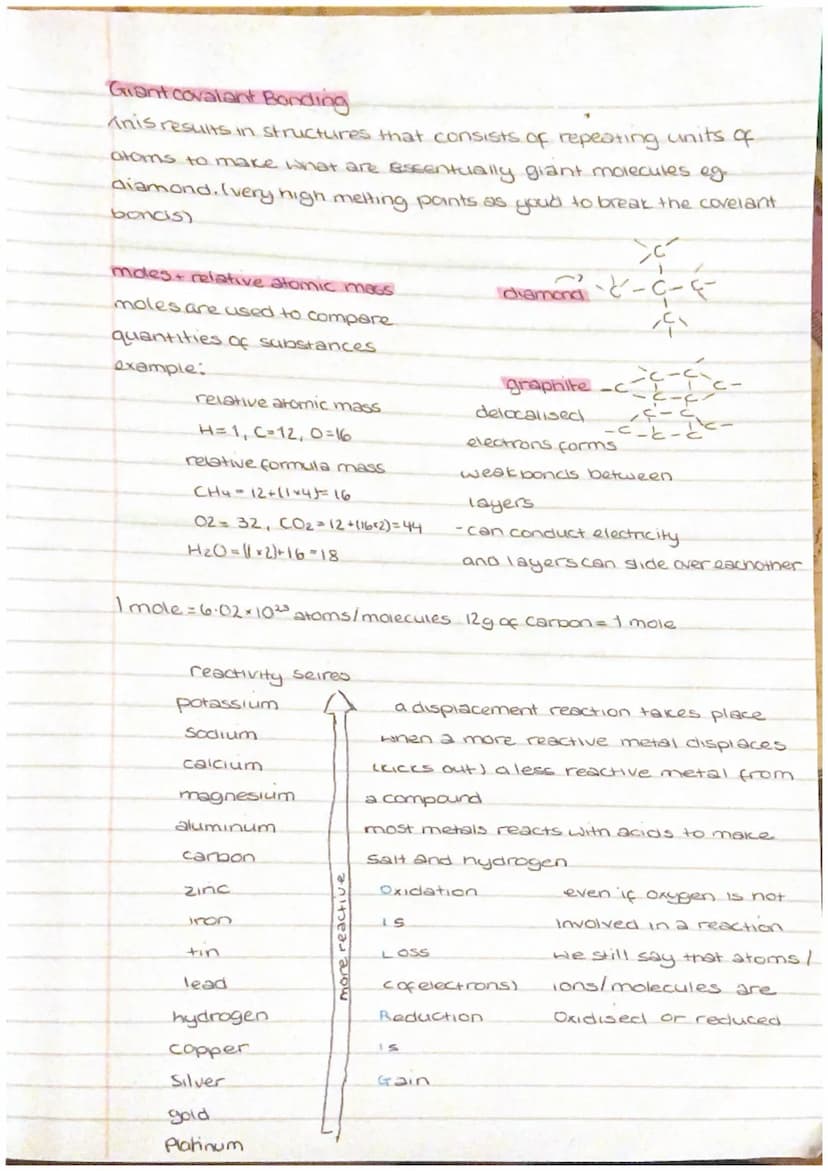 Giant covalent Bonding
this results in structures that consists of repeating units of
atoms to make what are essentually giant molecules eg
diamond. (very high melting points as you'd to break the covelant
bonds)
moles + relative atomic mass
moles are used to compare
quantities of substances
example:
relative atomic mass
H=1, C=12, O=16
relative formula mass
CH4 = 12+(1×4)= 16
O2 = 32, CO2 = 12+(16×2)=44
H2O = (1×2)+16 = 18
diamond
C
C - C - C
C
graphite
C C C C
C C
C C
C C C C
delocalised
electrons forms
weak bonds between
layers
- can conduct electricity
and layers can slide over eachother
1 mole = 6.02 × 10²³ atoms/molecules 12g of carbon = 1 mole
reactivity seires
potassium
sodium
calcium
magnesium
aluminum
carbon
zinc
iron
tin
lead
hydrogen
copper
silver
gold
Platinum
more reactive
a displacement reaction takes place
when a more reactive metal displaces
(kicks out) a less reactive metal from
a compound
most metals reacts with acids to make
salt and hydrogen
Oxidation
is
Loss
(of electrons)
Reduction
is
Gain
even if oxygen is not
involved in a reaction
we still say that atoms/
ions/molecules are
oxidised or reduced